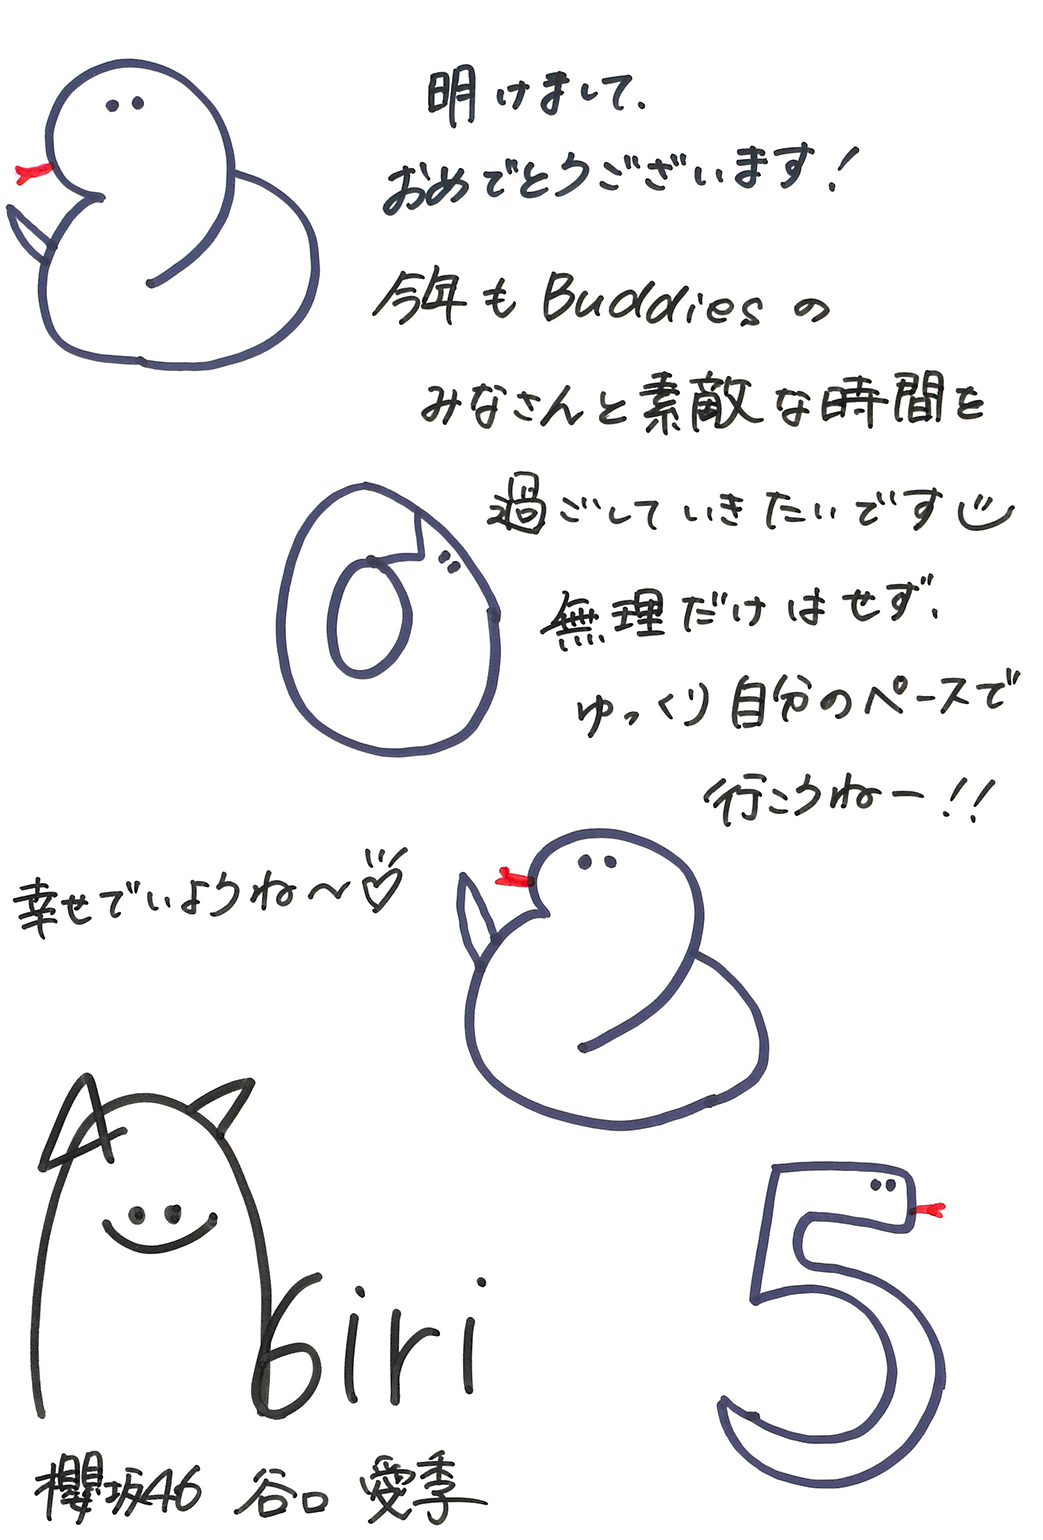 明けまして、
おめでとうございます！
今年も Buddies の
みなさんと素敵な時間を
過ごしていきたいです
無理だけはせず、
ゆっくり自分のペースで
行こうねー!!
幸せでいようね〜♡
2025
Airi
櫻坂46 谷口 愛季